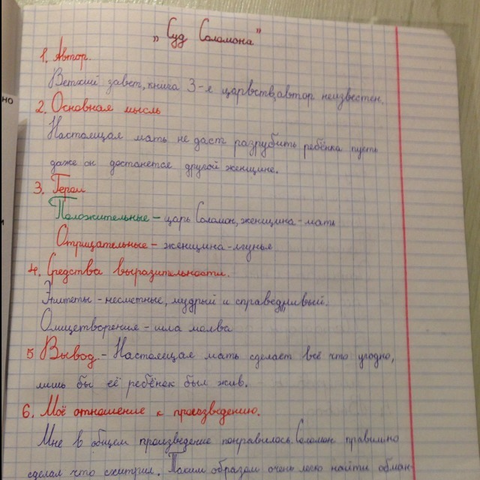 „Суд Соломона"
1. Автор.
Ветхий завет, книга 3-я царств, автор неизвестен.
2. Основная мысль
Настоящая мать не даст разрубить ребёнка пусть
даже он достанется другой женщине.
3. Герои
Положительные – царь Соломон, женщина-мать
Отрицательные – женщина-лгунья
4. Средства выразительности.
Эпитеты – несметные, мудрый и справедливый.
Олицетворения – шла молва
5 Вывод – Настоящая мать сделает всё что угодно,
лишь бы её ребёнок был жив.
6. Моё отношение к произведению.
Мне в общем произведение понравилось Соломон правильно
сделал что схитрил. Таким образом очень легко найти обман-
но